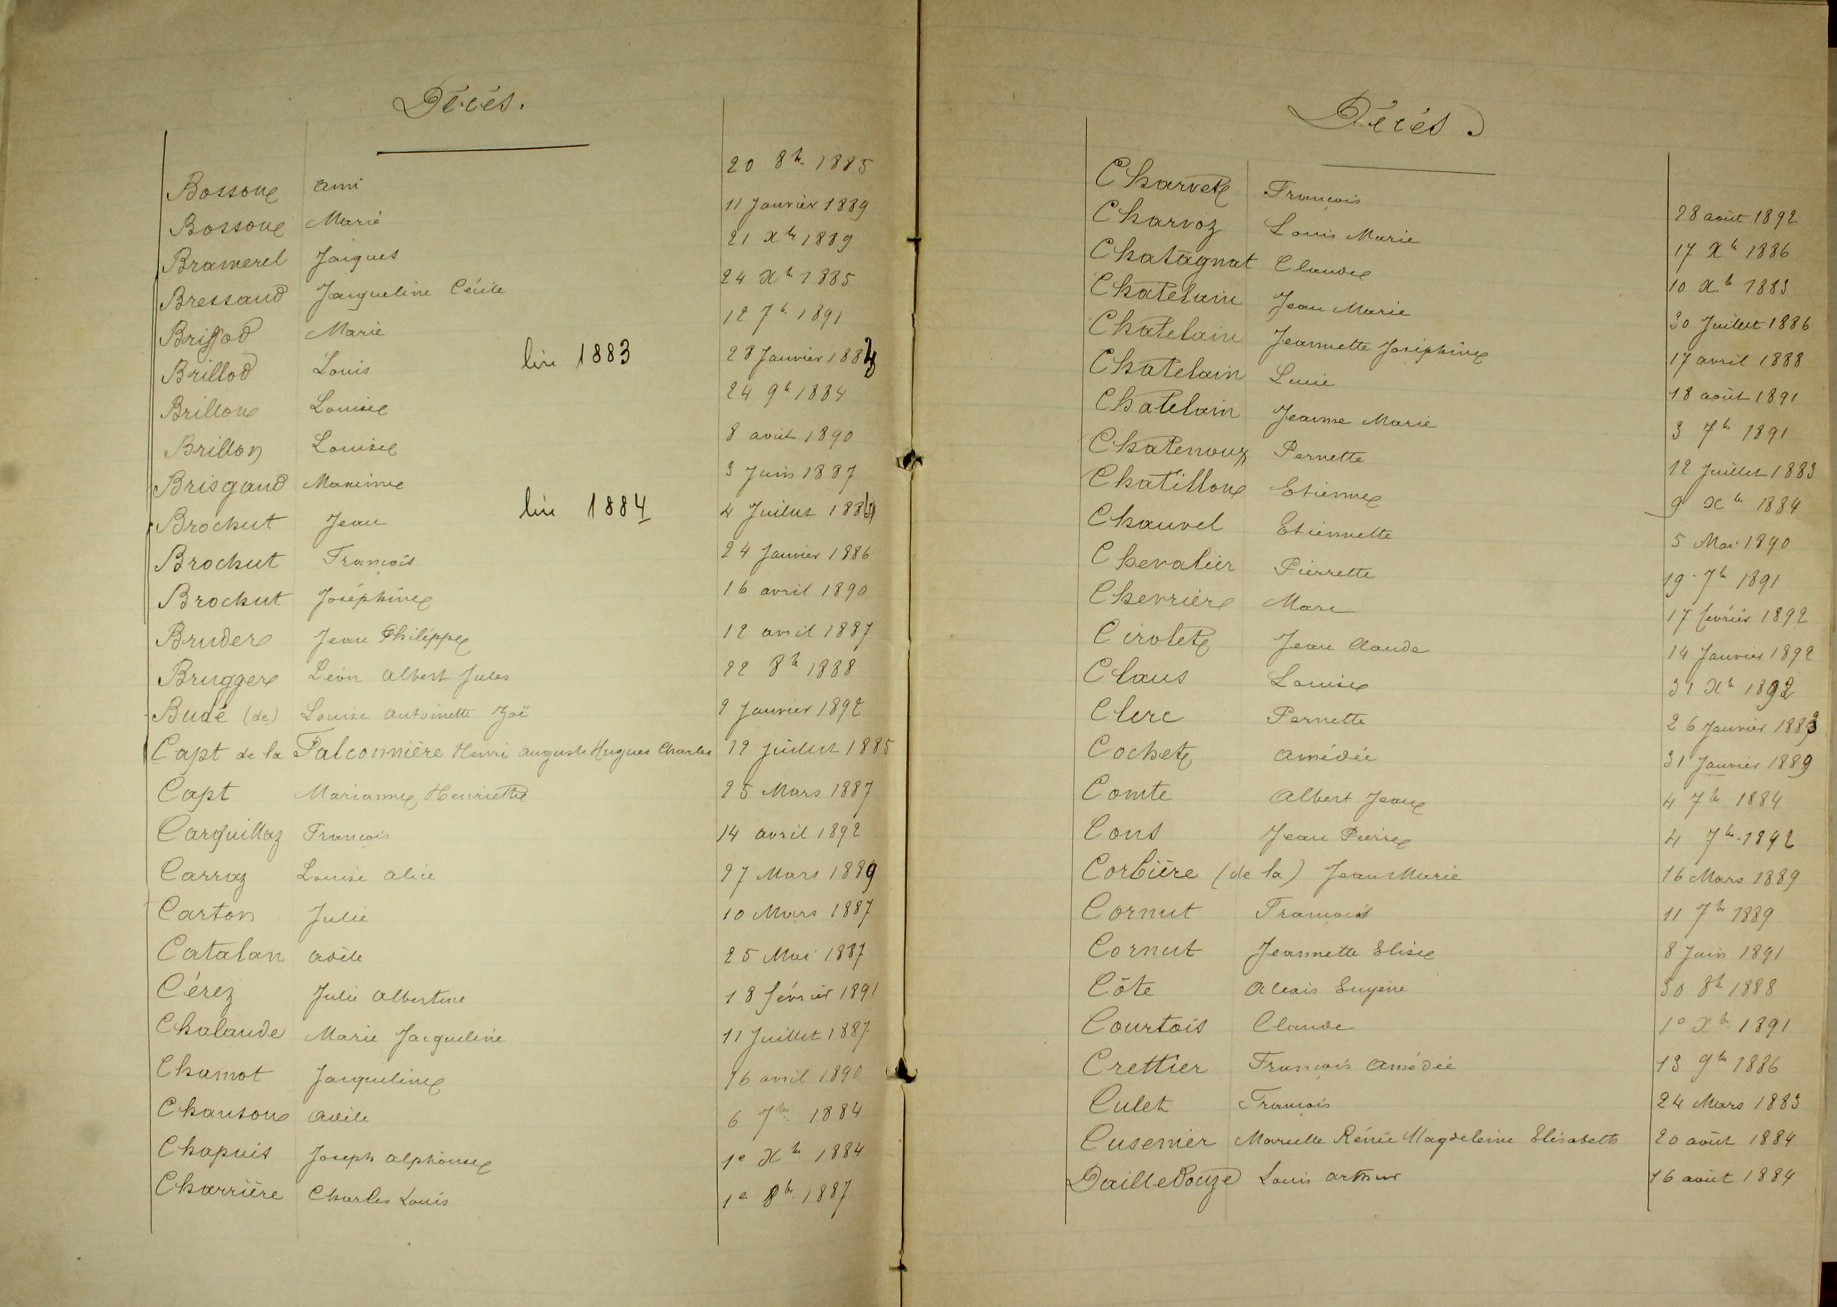 Décés.
Bosson Ami 20 8bre 1885
Bosson Marie 11 Janvier 1889
Bramerel Jaques 21 Xbre 1889
Bressaud Jacqueline Cécile 24 Xbre 1885
Briffod Marie 12 7bre 1891
Brillod Louis lire 1883 28 Janvier 1883
Brillon Louise 24 9bre 1884
Brillon Louise 8 août 1890
Brisgaud Maxime 3 Juin 1887
Brochut Jean lire 1884 4 Juillet 1884
Brochut François 24 Janvier 1886
Brochut Joséphine 16 avril 1890
Bruder Jean Philippe 12 avril 1887
Brugger Léon Albert Jules 22 8bre 1888
Budé (de) Louise Antoinette Zoé 2 Janvier 1892
Capt de la Falconnière Henri Auguste Hugues Charles 12 Juillet 1885
Capt Marianne Henriette 25 Mars 1887
Carquillaz François 14 avril 1892
Carraz Louise Alice 27 Mars 1889
Carton Julie 10 Mars 1887
Catalan Adèle 25 Mai 1887
Cérez Julie Albertine 18 février 1891
Chalande Marie Jacqueline 11 Juillet 1887
Chamot Jacqueline 16 avril 1890
Chanson Adèle 6 7bre 1884
Chapuis Joseph Alphonse 1e Xbre 1884
Charrière Charles Louis 1e 8bre 1887
Décés
Charvet François 28 août 1892
Charvoz Louis Marie 17 Xbre 1886
Chatagnat Claude 10 Xbre 1883
Chatelain Jean Marie 30 Juillet 1886
Chatelain Jeannette Joséphine 17 avril 1888
Chatelain Lucie 18 août 1891
Chatelain Jeanne Marie 3 7bre 1891
Chatenoux Pernette 12 Juillet 1883
Chatillon Etienne 9 Xbre 1884
Chauvel Etiennette 5 Mai 1890
Chevalier Pierrette 19 7bre 1891
Chevrière Marc 17 février 1892
Cirolet Jean Claude 14 Janvier 1892
Claus Louise 31 Xbre 1892
Clerc Pernette 26 Janvier 1883
Cochet Amédée 31 Janvier 1889
Comte Albert Jean 4 7bre 1884
Cons Jean Pierre 4 7bre 1892
Corbière (de la) Jean Marie 16 Mars 1889
Cornut François 11 7bre 1889
Cornut Jeannette Elise 8 Juin 1891
Côte Alexis Eugène 30 8bre 1888
Courtois Claude 1e Xbre 1891
Crettier François Amédée 13 9bre 1886
Culet François 24 Mars 1883
Cusenier Marcelle Rénée Magdeleine Elisabeth 20 août 1884
Dailledouze Louis Arthur 16 août 1884